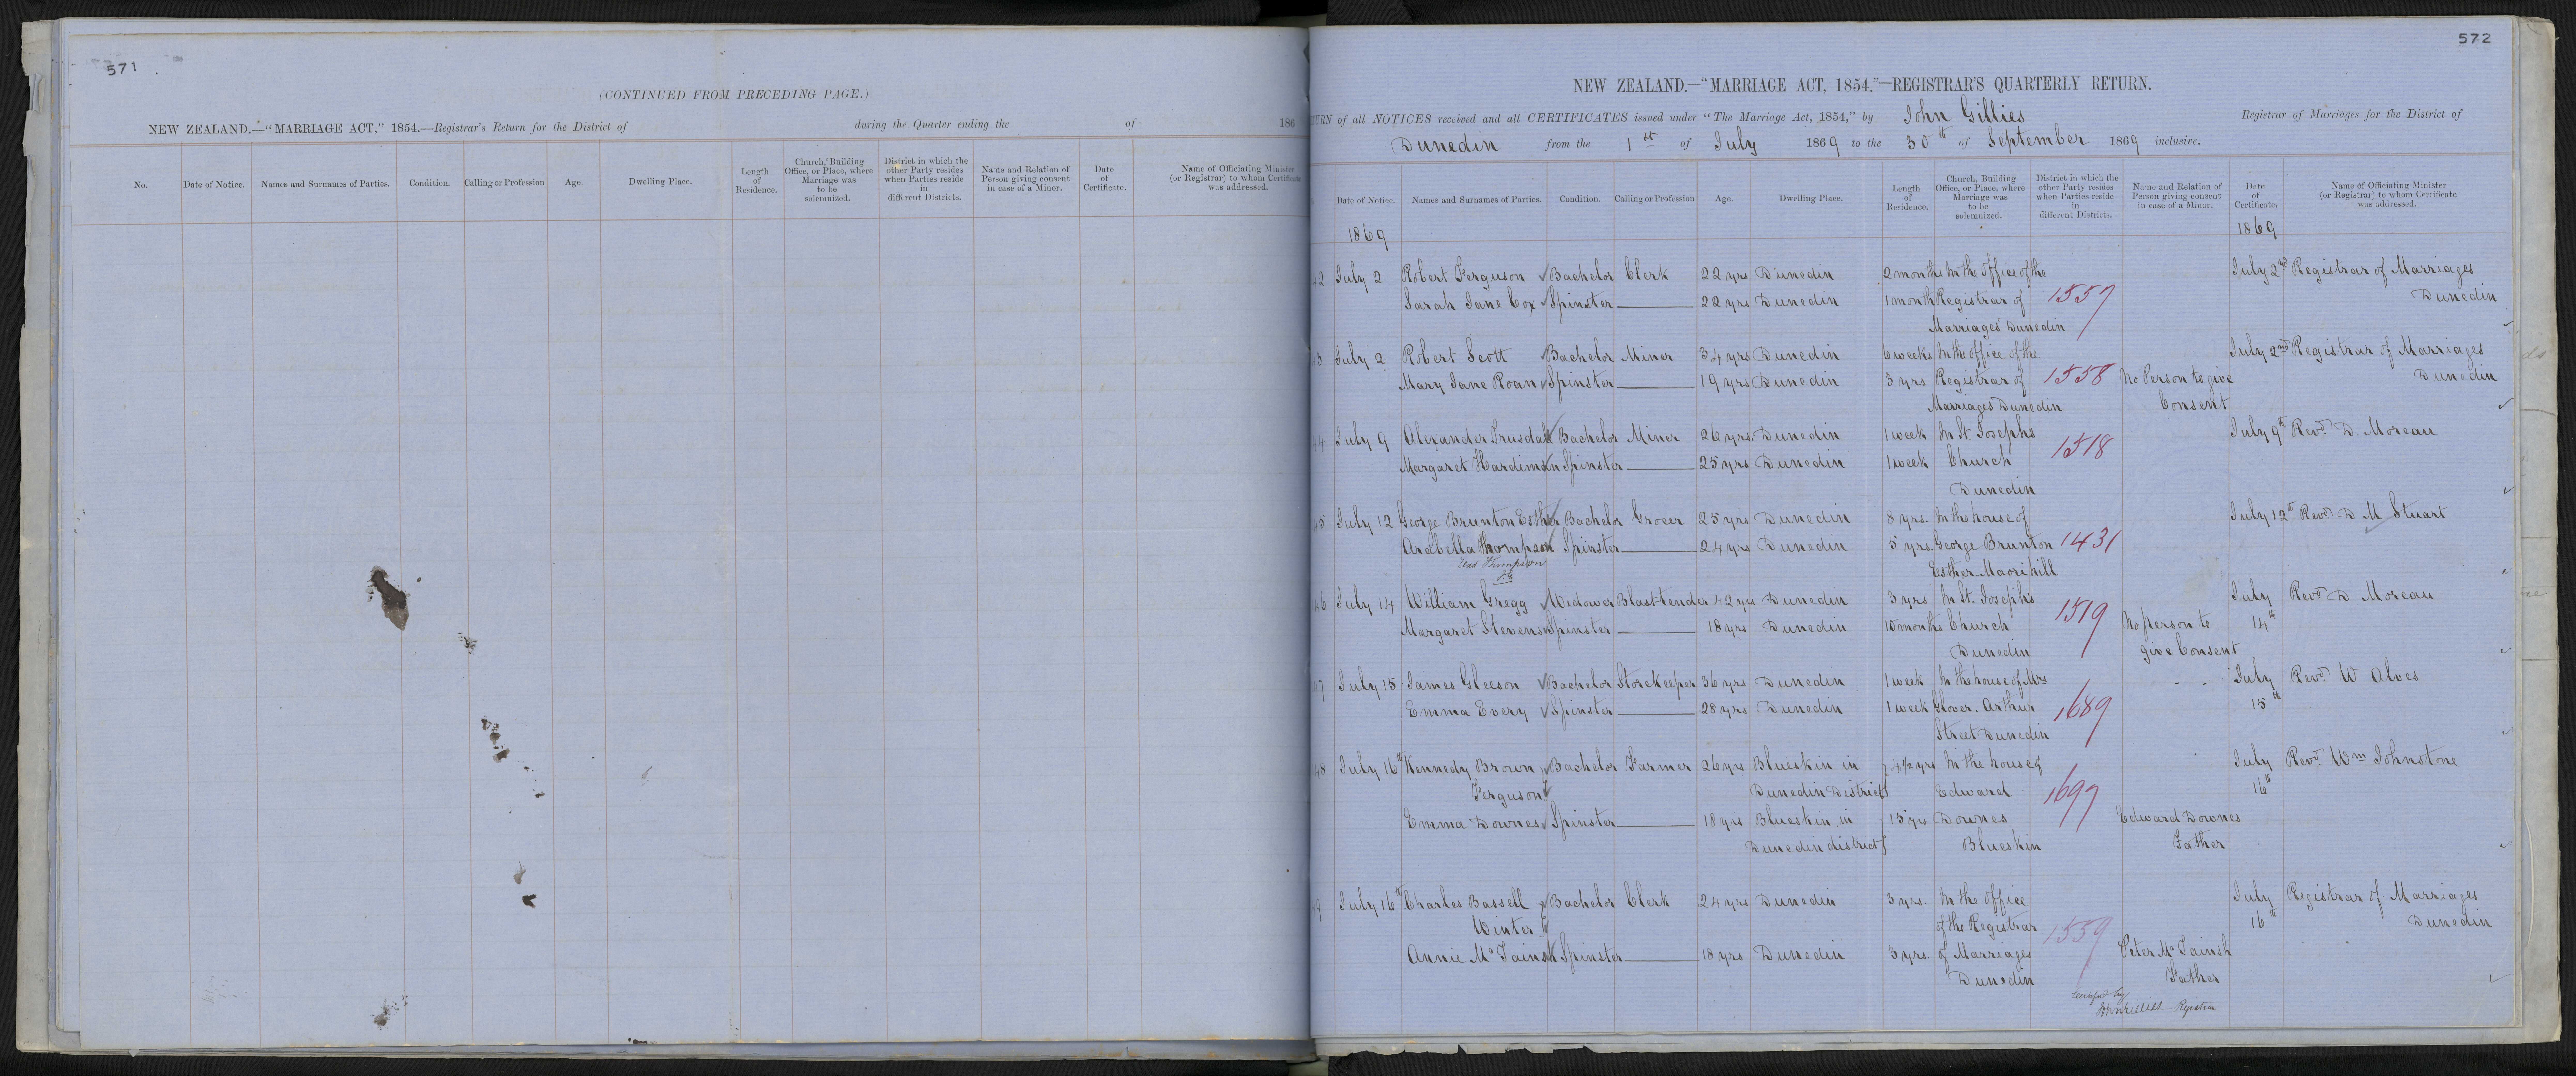 571
(CONTINUED FROM PRECEDING PAGE.)
NEW ZEALAND.—"MARRIAGE ACT," 1854.—Registrar's Return for the District of during the Quarter ending the of 186
No. Date of Notice. Names and Surnames of Parties. Condition. Calling or Profession Age. Dwelling Place. Length of Residence. Church, Building Office, or Place, where Marriage was to be solemnized. District in which the other Party resides when Parties reside in different Districts. Name and Relation of Person giving consent in case of a Minor. Date of Certificate. Name of Officiating Minister (or Registrar) to whom Certificate was addressed.
572
NEW ZEALAND.—"MARRIAGE ACT, 1854."—REGISTRAR'S QUARTERLY RETURN.
TURN of all NOTICES received and all CERTIFICATES issued under "The Marriage Act, 1854," by John Gillies Registrar of Marriages for the District of
Dunedin from the 1st of July 1869 to the 30th of September 1869 inclusive.
Date of Notice. Names and Surnames of Parties. Condition. Calling or Profession Age. Dwelling Place. Length of Residence. Church, Building Office, or Place, where Marriage was to be solemnized. District in which the other Party resides when Parties reside in different Districts. Name and Relation of Person giving consent in case of a Minor. Date of Certificate. Name of Officiating Minister (or Registrar) to whom Certificate was addressed.
1869 1869
42 July 2 Robert Ferguson Bachelor Clerk 22 yrs Dunedin 2 months In the Office of the July 2nd Registrar of Marriages
Sarah Jane Cox Spinster 22 yrs Dunedin 1 month Registrar of 1557 Dunedin
Marriages Dunedin
43 July 2 Robert Scott Bachelor Miner 34 yrs Dunedin 6 weeks In the office of the July 2nd Registrar of Marriages
Mary Jane Roan Spinster 19 yrs Dunedin 3 yrs Registrar of 1558 No Person to give Dunedin
Marriages Dunedin Consent
44 July 9 Alexander Trusdall Bachelor Miner 26 yrs. Dunedin 1 week In St. Josephs July 9th Revd. D. Moreau
Margaret Hardiman Spinster 25 yrs Dunedin 1 week Church 1518
Dunedin
45 July 12 George Brunton Esther Bachelor Grocer 25 yrs Dunedin 8 yrs. In the house of July 12th Revd. D M Stuart
Arabella Thompson Spinster 24 yrs Dunedin 5 yrs. George Brunton 1431
Thompson Esther Maori hill
46 July 14 William Gregg Widower Blast-tender 42 yrs Dunedin 3 yrs In St. Josephs July Revd. D Moreau
Margaret Stevens Spinster 18 yrs Dunedin 10 months Church 1519 No person to 14th
Dunedin give Consent
47 July 15 James Gleeson Bachelor Storekeeper 36 yrs Dunedin 1 week In the house of Mrs July Revd. W Alves
Emma Every Spinster 28 yrs Dunedin 1 week Glover. Arthur 1689 15th
Street Dunedin
48 July 16th Kennedy Brown Bachelor Farmer 26 yrs Blueskin in 4½ yrs In the house of July Revd. Wm Johnstone
Ferguson Dunedin District Edward 1697 16th
Emma Downes Spinster 18 yrs Blueskin in 15 yrs Downes Edward Downes
Dunedin district Blueskin Father
49 July 16th Charles Bassell Bachelor Clerk 24 yrs Dunedin 3 yrs. In the Office July Registrar of Marriages
Winter of the Registrar 1559 16th Dunedin
Annie McTainsh Spinster 18 yrs Dunedin 3 yrs. of Marriages Peter McTainsh
Dunedin Father
John Gillies Registrar